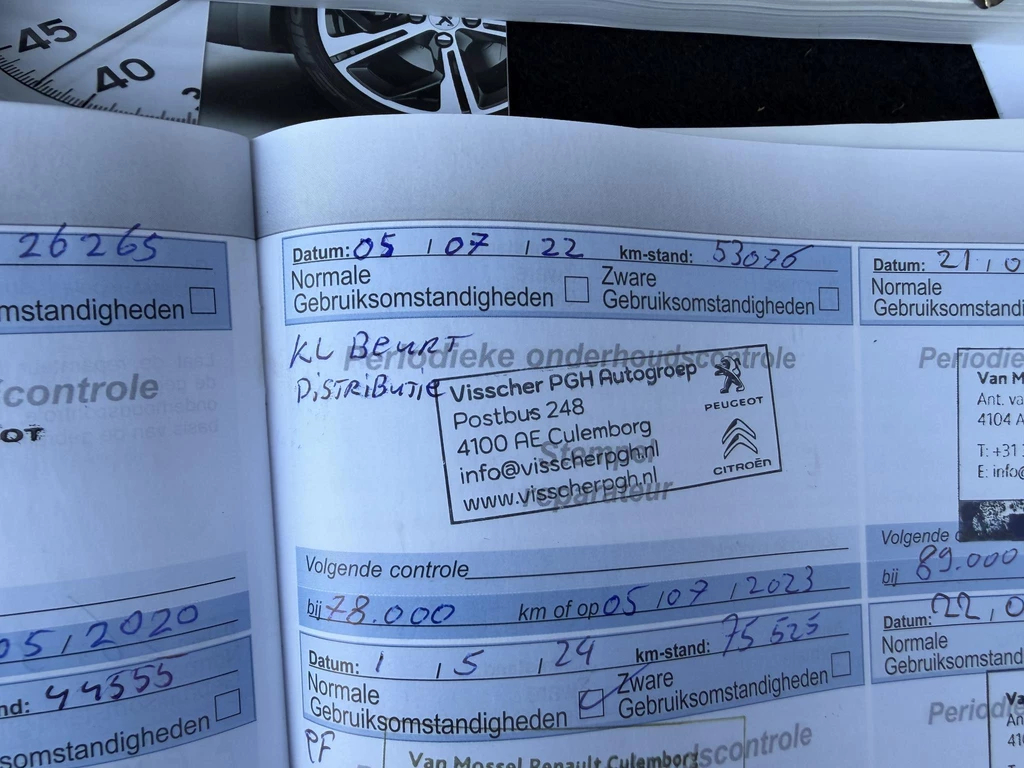 45
40
26265
omstandigheden
controle
OT
05/2020
nd: 44555
somstandigheden
Datum: 05 / 07 / 22 km-stand: 53076
Normale
Gebruiksomstandigheden
Zware
Gebruiksomstandigheden
KL BEURT
DISTRIBUTIE
Periodieke onderhoudscontrole
Visscher PGH Autogroep
Postbus 248
4100 AE Culemborg
info@visscherpgh.nl
www.visscherpgh.nl
PEUGEOT
CITROËN
Stempel
reparateur
Volgende controle
bij 78.000 km of op 05 / 07 / 2023
Datum: 1 / 5 / 24 km-stand: 75525
Normale
Gebruiksomstandigheden
Zware
Gebruiksomstandigheden
PF
Van Mossel Renault Culemborg
dscontrole
Datum: 21 / 0
Normale
Gebruiksomstandi
Periodie
Van M
Ant. va
4104 A
T: +31
E: info@
Volgende c
bij 89.000
Datum: 22 / 0
Normale
Gebruiksomstand
Periodi
Va
An
410